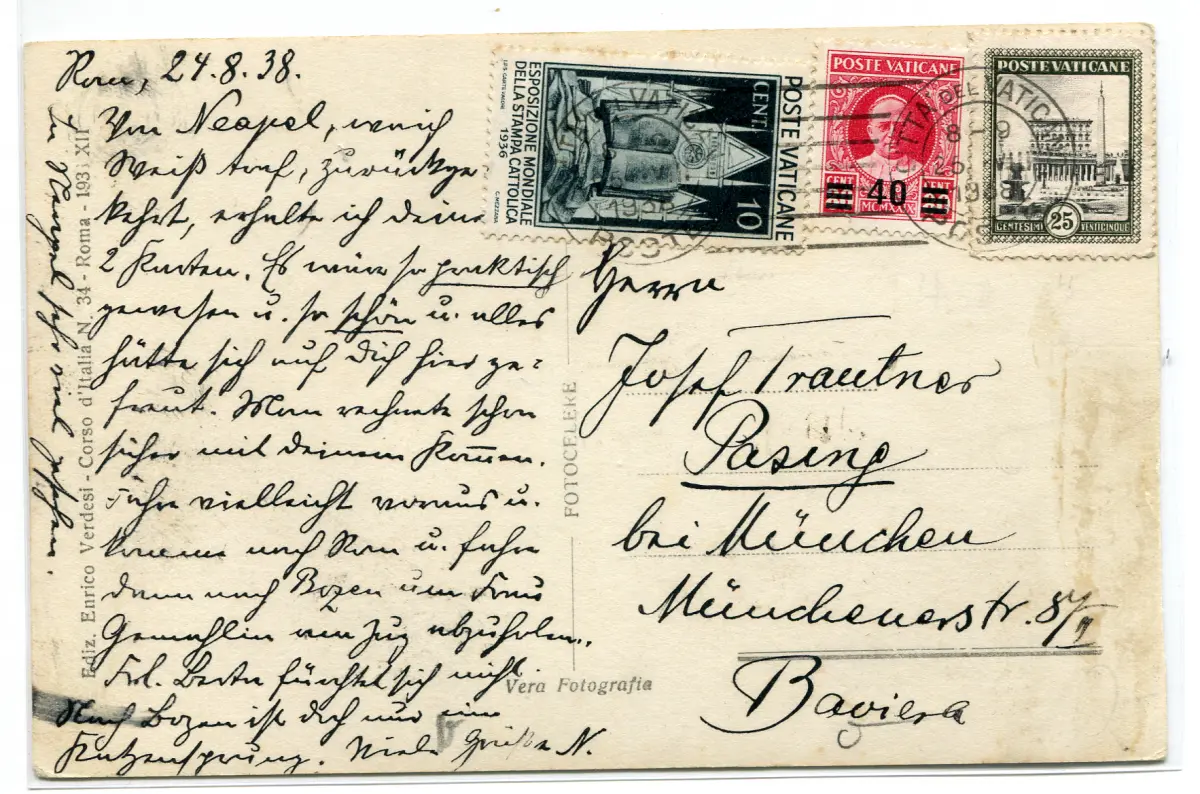 Rom, 24.8.38.
Von Neapel, wo ich
Weiß traf, zurückge
kehrt, erhalte ich deine
2 Karten. Es wäre so praktisch
gewesen u. so schön u. alles
hätte sich auf Dich hier ge=
freut. Man rechnete schon
sicher mit deinem Kommen.
Fahre vielleicht voraus u.
komme nach Rom u. fahre
dann nach Bozen um Frau
Gemahlin am Zug abzuholen.
Frl. Berta fürchtet sich nicht.
Nach Bozen ist doch nur ein
Katzensprung. Viele Grüße N.
In Neapel sehr viel gesehen.
Ediz. Enrico Verdesi - Corso d'Italia N. 34 - Roma - 193 XII
FOTOCELERE
Vera Fotografia
ESPOSIZIONE MONDIALE
DELLA STAMPA CATTOLICA
1936
POSTE VATICANE
CENT.
10
POSTE VATICANE
40
CENT
CENT
MCMXXIX
POSTE VATICANE
25
CENTESIMI VENTICINQUE
8-9
1938
Herrn
Josef Trautner
Pasing
bei München
Münchenerstr.
Baviera